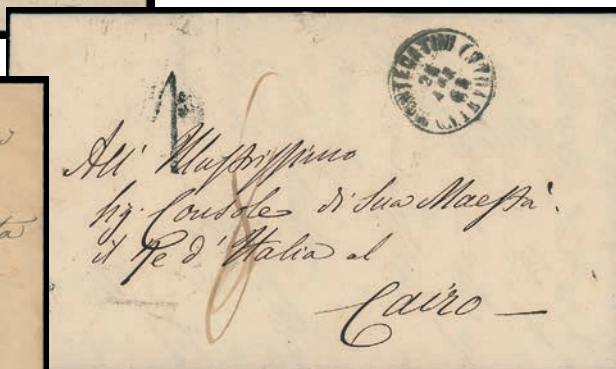 MONTECATINI
1
8
All' Illustrissimo
Sig. Console di Sua Maestà
il Re d'Italia al
Cairo —
ta